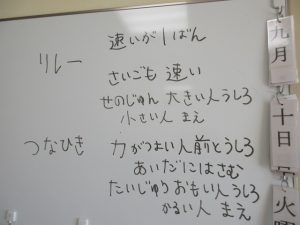 リレー
速いが1ばん
さいごも 速い
せのじゅん 大きい人うしろ
小さい人 まえ
つなひき
力がつよい人前とうしろ
あいだにはさむ
たいじゅうおもい人うしろ
かるい人 まえ
九月
十日
火